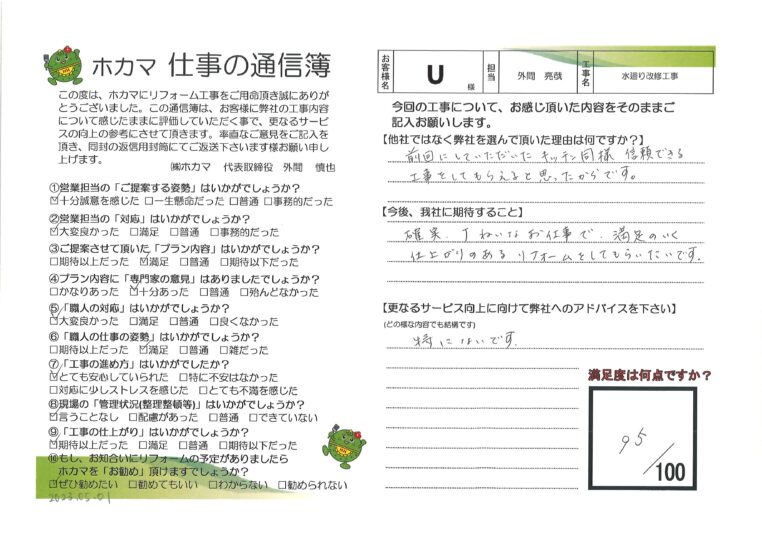 ホカマ 仕事の通信簿
この度は、ホカマにリフォーム工事をご用命頂き誠にありが
とうございました。この通信簿は、お客様に弊社の工事内容
について感じたままに評価していただく事で、更なるサービ
スの向上の参考にさせて頂きます。率直なご意見をご記入を
頂き、同封の返信用封筒にてご返送下さいます様お願い申し
上げます。
㈱ホカマ 代表取締役 外間 慎也
①営業担当の「ご提案する姿勢」はいかがでしょうか?
☑十分誠意を感じた □一生懸命だった □普通 □事務的だった
②営業担当の「対応」はいかがでしょうか?
☑大変良かった □満足 □普通 □事務的だった
③ご提案させて頂いた「プラン内容」はいかがでしょうか?
□期待以上だった ☑満足 □普通 □期待以下だった
④プラン内容に「専門家の意見」はありましたでしょうか?
□かなりあった ☑十分あった □普通 □殆んどなかった
⑤「職人の対応」はいかがでしょうか?
☑大変良かった □満足 □普通 □良くなかった
⑥「職人の仕事の姿勢」はいかがでしょうか?
□期待以上だった ☑満足 □普通 □雑だった
⑦「工事の進め方」はいかがでしたか?
☑とても安心していられた □特に不安はなかった
□対応に少しストレスを感じた □とても不満を感じた
⑧現場の「管理状況(整理整頓等)」はいかがでしょうか?
☑言うことなし □配慮があった □普通 □できていない
⑨「工事の仕上がり」はいかがでしょうか?
☑期待以上だった □満足 □普通 □期待以下だった
⑩もし、お知合いにリフォームの予定がありましたら
ホカマを「お勧め」頂けますでしょうか?
☑ぜひ勧めたい □勧めてもいい □わからない □勧められない
2023.05.01
お客様名 U 様 担当 外間 亮哉 工事名 水廻り改修工事
今回の工事について、お感じ頂いた内容をそのままご
記入お願いします。
【他社ではなく弊社を選んで頂いた理由は何ですか?】
前回にしていただいた キッチン同様 信頼できる
工事をしてもらえると思ったからです。
【今後、我社に期待すること】
確実、丁ねいなお仕事で、満足のいく
仕上がりのあるリフォームをしてもらいたいです。
【更なるサービス向上に向けて弊社へのアドバイスを下さい】
(どの様な内容でも結構です)
特にないです。
満足度は何点ですか?
95/100